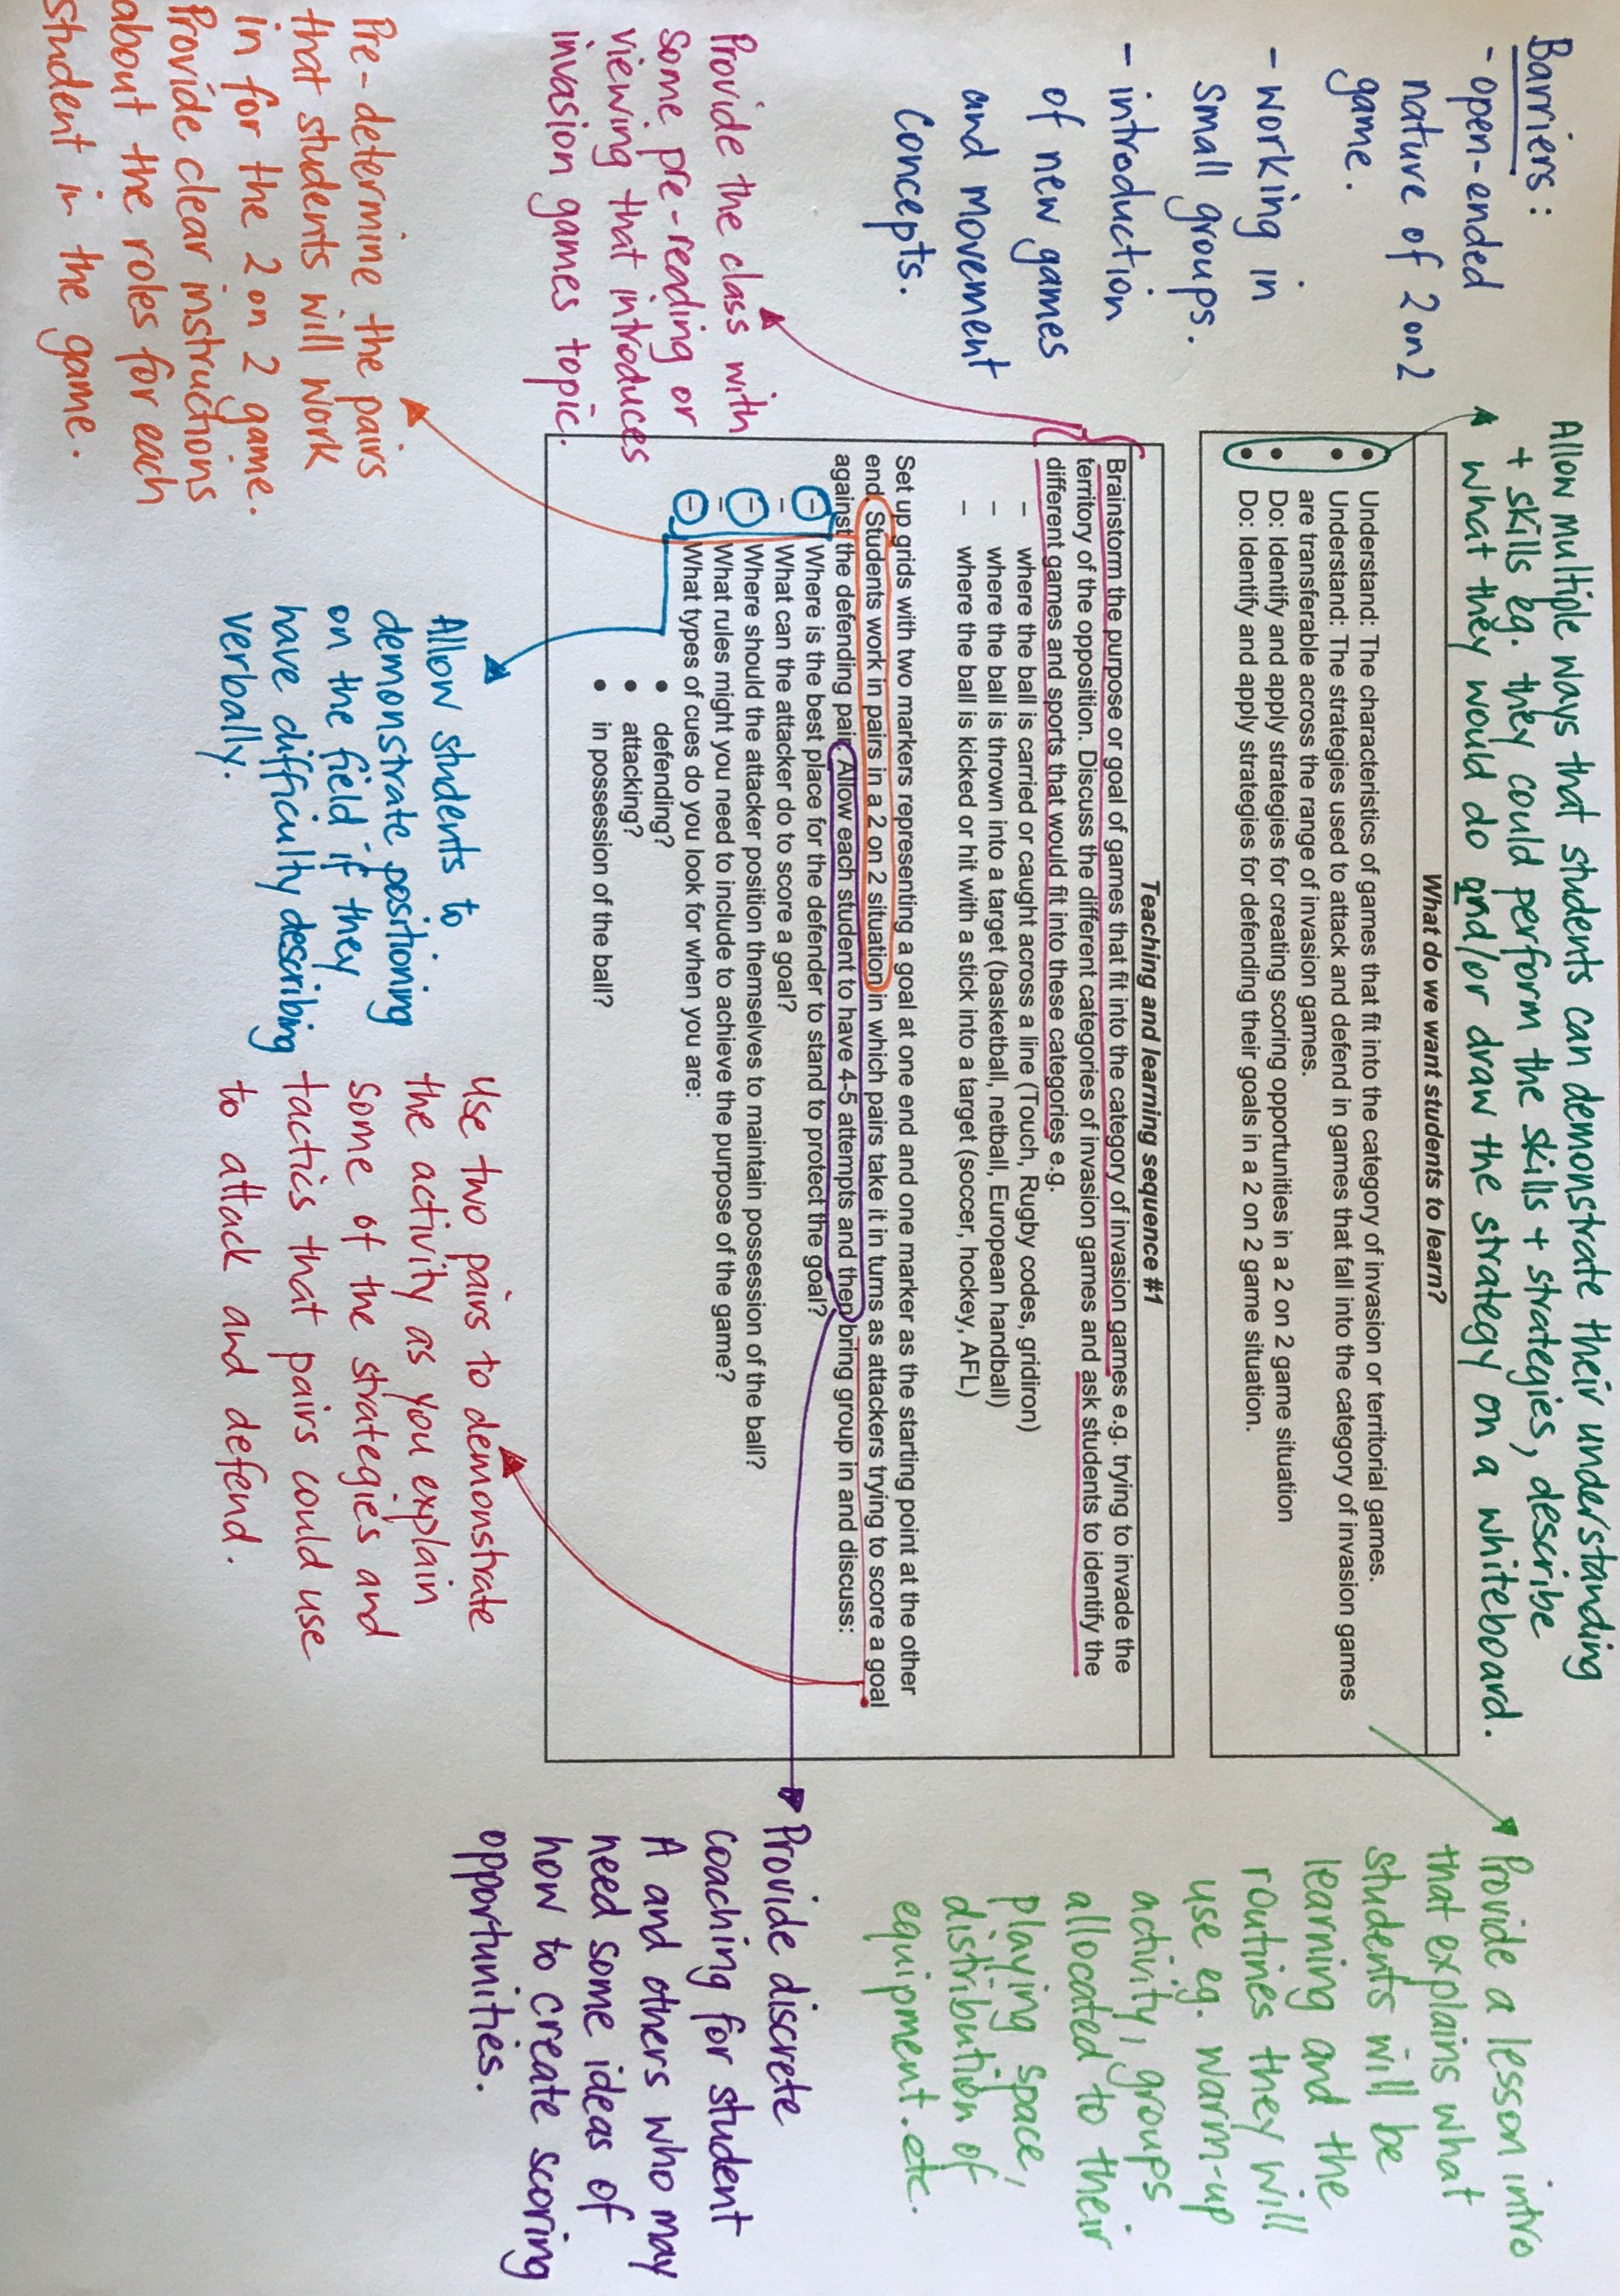 Barriers:
- open-ended
nature of 2 on 2
game.
- working in
small groups.
- introduction
of new games
and movement
concepts.
Allow multiple ways that students can demonstrate their understanding
+ skills eg. they could perform the skills + strategies, describe
what they would do and/or draw the strategy on a whiteboard.
What do we want students to learn?
• Understand: The characteristics of games that fit into the category of invasion or territorial games.
• Understand: The strategies used to attack and defend in games that fall into the category of invasion games
are transferable across the range of invasion games.
• Do: Identify and apply strategies for creating scoring opportunities in a 2 on 2 game situation
• Do: Identify and apply strategies for defending their goals in a 2 on 2 game situation.
Provide a lesson intro
that explains what
students will be
learning and the
routines they will
use eg. warm-up
activity, groups
allocated to their
playing space,
distribution of
equipment.etc.
Teaching and learning sequence #1
Brainstorm the purpose or goal of games that fit into the category of invasion games e.g. trying to invade the
territory of the opposition. Discuss the different categories of invasion games and ask students to identify the
different games and sports that would fit into these categories e.g.
– where the ball is carried or caught across a line (Touch, Rugby codes, gridiron)
– where the ball is thrown into a target (basketball, netball, European handball)
– where the ball is kicked or hit with a stick into a target (soccer, hockey, AFL)
Set up grids with two markers representing a goal at one end and one marker as the starting point at the other
end. Students work in pairs in a 2 on 2 situation in which pairs take it in turns as attackers trying to score a goal
against the defending pair. Allow each student to have 4-5 attempts and then bring group in and discuss:
– Where is the best place for the defender to stand to protect the goal?
– What can the attacker do to score a goal?
– Where should the attacker position themselves to maintain possession of the ball?
– What rules might you need to include to achieve the purpose of the game?
– What types of cues do you look for when you are:
• defending?
• attacking?
• in possession of the ball?
Provide the class with
some pre-reading or
viewing that introduces
invasion games topic.
Pre-determine the pairs
that students will work
in for the 2 on 2 game.
Provide clear instructions
about the roles for each
student in the game.
Allow students to
demonstrate positioning
on the field if they
have difficulty describing
verbally.
Use two pairs to demonstrate
the activity as you explain
some of the strategies and
tactics that pairs could use
to attack and defend.
Provide discrete
coaching for student
A and others who may
need some ideas of
how to create scoring
opportunities.